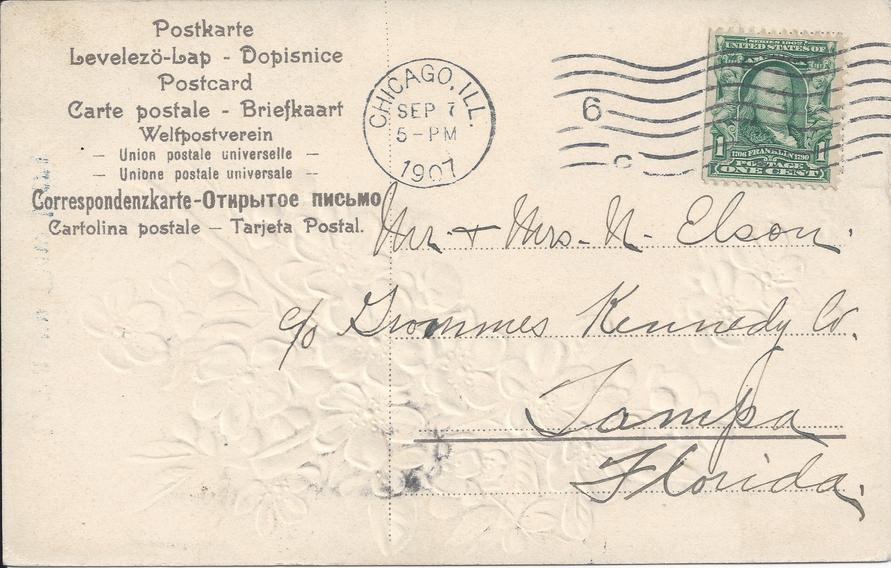 Postkarte
Levelezö-Lap - Dopisnice
Postcard
Carte postale - Briefkaart
Weltpostverein
— Union postale universelle —
— Unione postale universale —
Correspondenzkarte-Открытое письмо
Cartolina postale — Tarjeta Postal.
CHICAGO, ILL.
SEP 7
5-PM
1907
6
C
SERIES 1902
UNITED STATES OF
AMERICA
1 1
1706 FRANKLIN 1790
POSTAGE
ONE CENT
Mr. + Mrs. N. Elson.
c/o Grommes Kennedy Co.
Tampa
Florida.